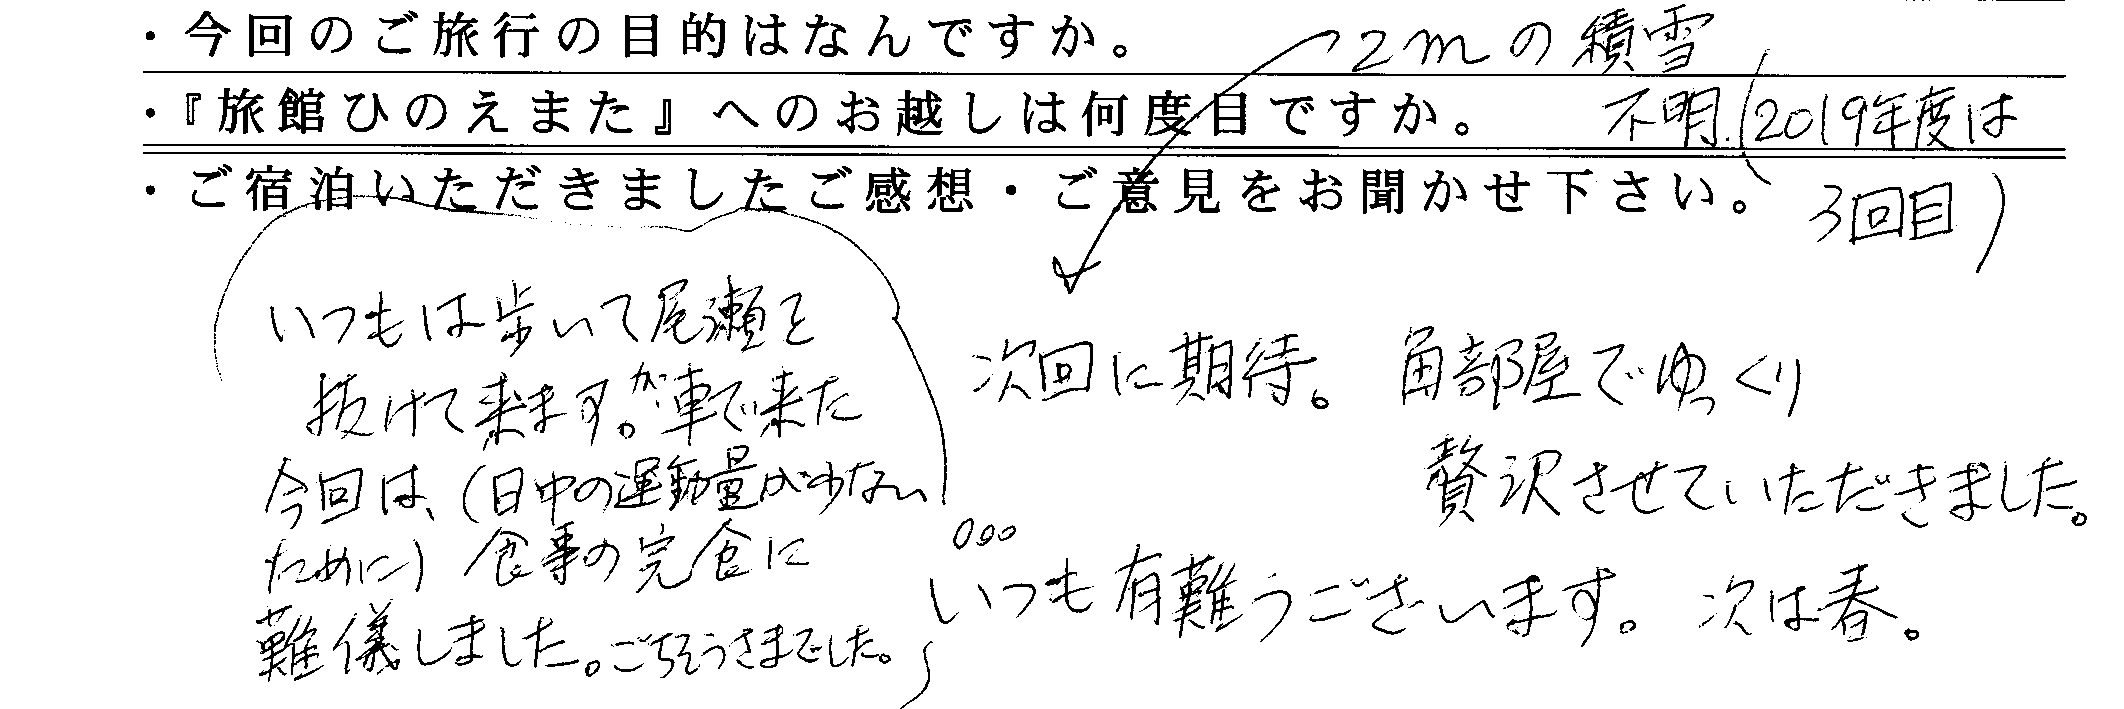 ・今回のご旅行の目的はなんですか。
2mの積雪
・『旅館ひのえまた』へのお越しは何度目ですか。
不明.(2019年度は
3回目)
・ご宿泊いただきましたご感想・ご意見をお聞かせ下さい。
いつもは歩いて尾瀬を
抜けて来ます。が車で来た
今回は、(日中の運動量が少ない
ために)食事の完食に
難儀しました。ごちそうさまでした。
次回に期待。角部屋でゆっくり
贅沢させていただきました。
いつも有難うございます。次は春。